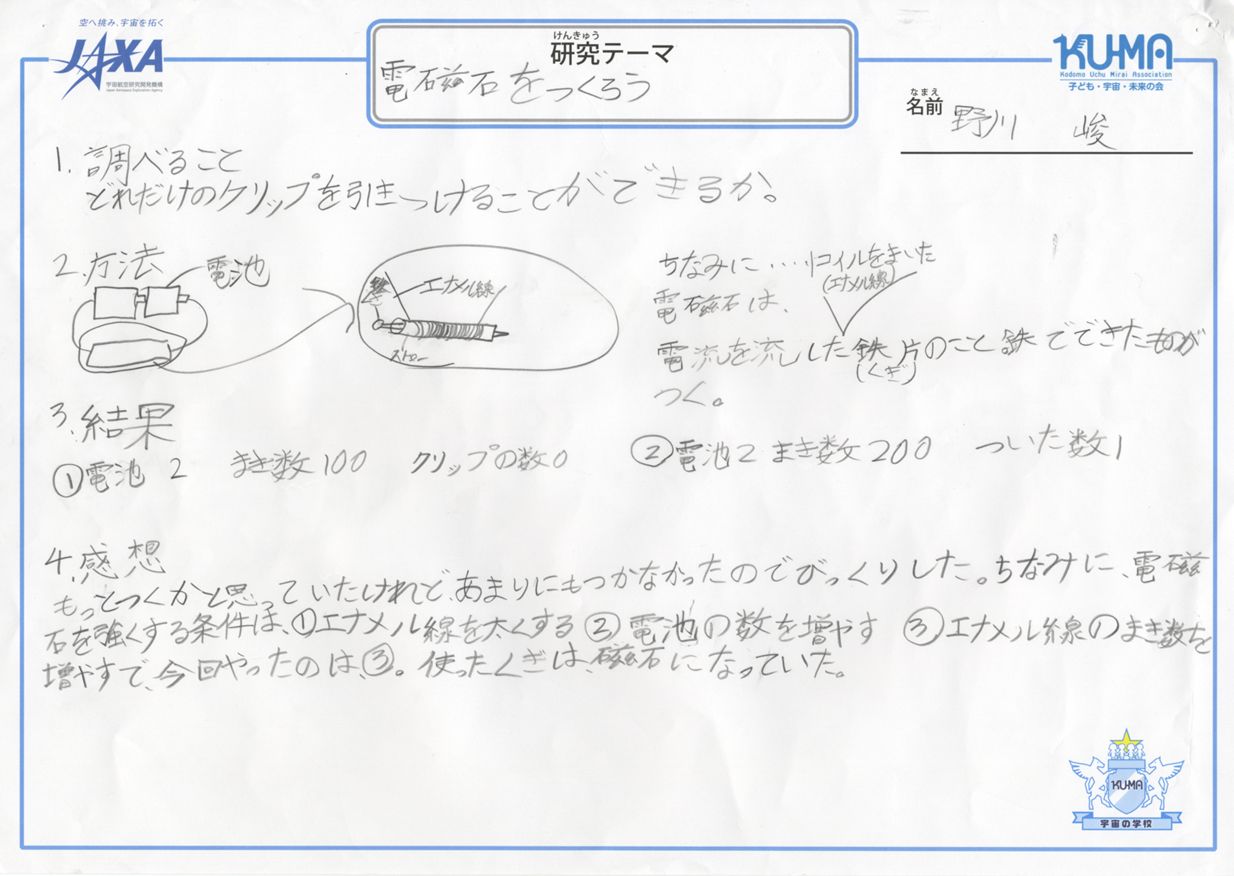 空へ挑み、宇宙を拓く
JAXA
宇宙航空研究開発機構
Japan Aerospace Exploration Agency
けんきゅう
研究テーマ
電磁石をつくろう
KU-MA
Kodomo Uchu Mirai Association
子ども・宇宙・未来の会
なまえ
名前 野川 峻
1. 調べること
どれだけのクリップを引きつけることができるか。
2. 方法
電池
エナメル線
ストロー
ちなみに・・・コイルをまいた
(エナメル線)
電磁石は、
電流を流した鉄片のこと 鉄でできたものが
(くぎ)
つく。
3. 結果
①電池 2 まき数100 クリップの数0
②電池2 まき数200 ついた数1
4. 感想
もっとつくかと思っていたけれど、あまりにもつかなかったのでびっくりした。ちなみに、電磁
石を強くする条件は、①エナメル線を太くする ②電池の数を増やす ③エナメル線のまき数を
増やすで、今回やったのは、③。使ったくぎは、磁石になっていた。
KU-MA
宇宙の学校